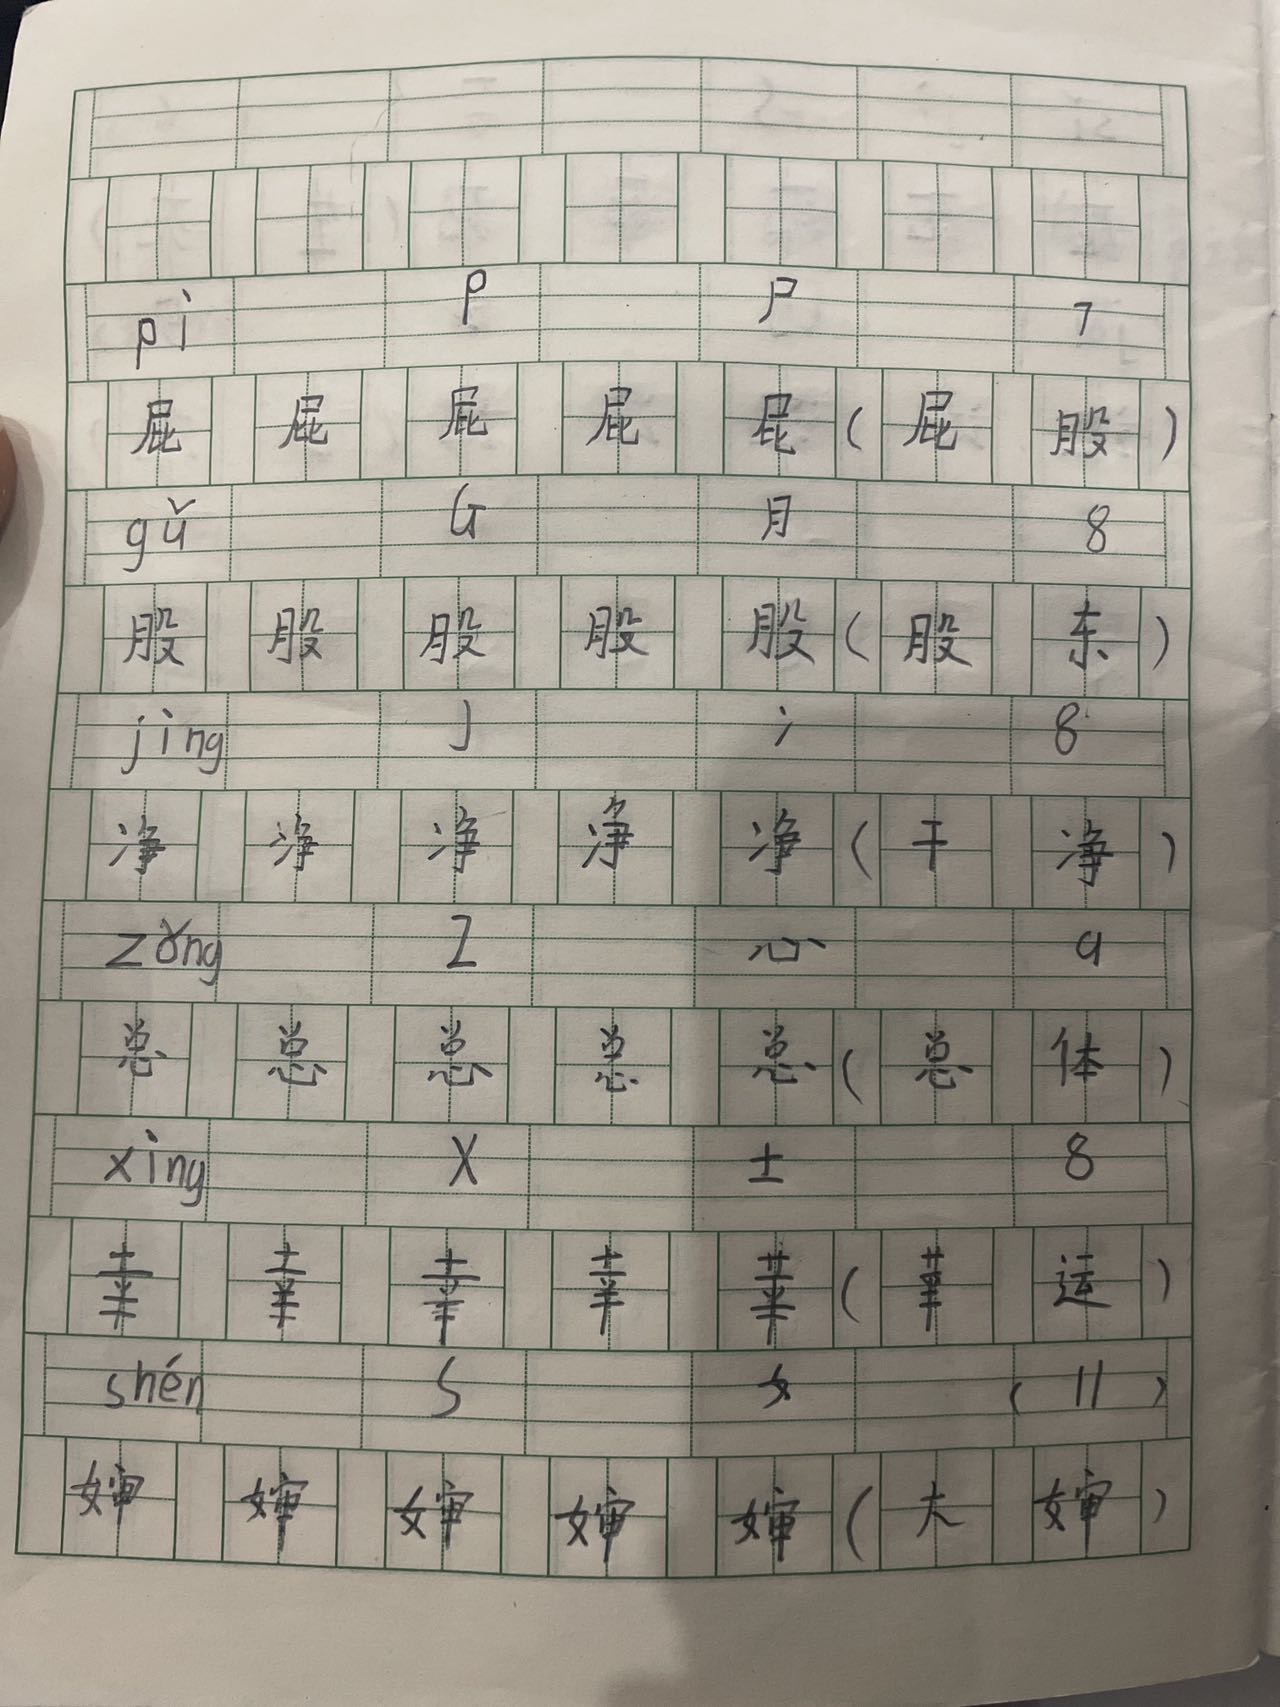 pì P 尸 7
屁 屁 屁 屁 屁 ( 屁 股 )
gǔ G 月 8
股 股 股 股 股 ( 股 东 )
jìng J 冫 8
净 净 净 净 净 ( 干 净 )
zǒng Z 心 9
总 总 总 总 总 ( 总 体 )
xìng X 土 8
幸 幸 幸 幸 幸 ( 幸 运 )
shén S 女 ( 11 )
婶 婶 婶 婶 婶 ( 大 婶 )